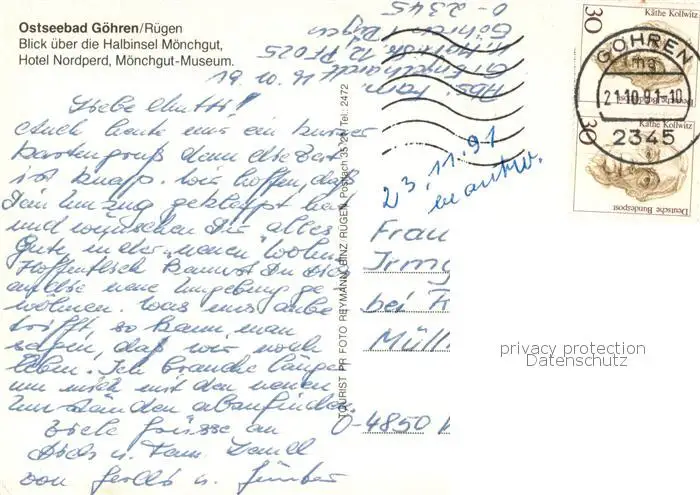 Ostseebad Göhren/Rügen
Blick über die Halbinsel Mönchgut,
Hotel Nordperd, Mönchgut-Museum.
19.10.91
Liebe Mutti!
Auch heute nur ein kurzer
Kartengruß denn die Zeit
ist knapp. Wir hoffen, daß
Dein Umzug geklappt hat
und wünschen Dir alles
Gute in der "neuen"
Hoffentlich kannst Du Dich
an die neue Umgebung ge
wöhnen. Was uns anbe
trifft, so kann man
sagen, daß wir noch
leben. Ich brauche länger
um mich mit den neuen
Umständen abzufinden.
Viele Grüsse an
Dich u. Fam.
von u. Günter
TOURIST PR FOTO REYMANN BINZ/RÜGEN Postfach 35/24 Tel.: 2472
Abs. Fam.
12 PF 025
Göhren / Rügen
O-2345
23.11.91
beantw.
Frau
Irmg
bei F
Müll
O-4850
30
Käthe Kollwitz
Deutsche Bundespost
30
Käthe Kollwitz
Deutsche Bundespost
GÖHREN
mg
21.10.91-10
2345
privacy protection
Datenschutz